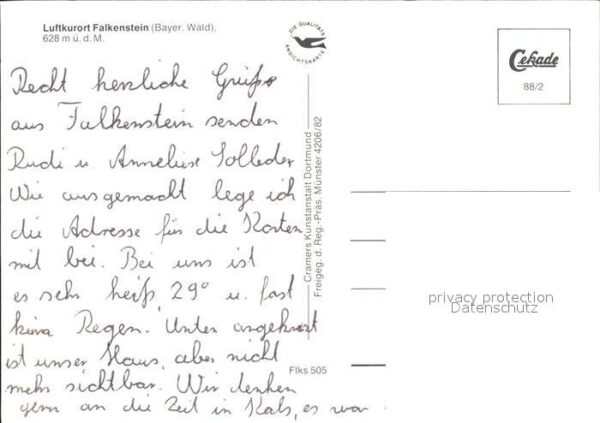 Luftkurort Falkenstein (Bayer. Wald),
628 m ü. d. M.
DIE QUALITÄTS
ANSICHTSKARTE
Cekade
88/2
Recht herzliche Grüße
aus Falkenstein senden
Rudi u. Anneliese Solleder
Wie ausgemacht lege ich
die Adresse für die Karten
mit bei. Bei uns ist
es sehr heiß, 29° u. fast
kein Regen. Unten angekreuzt
ist unser Haus, aber nicht
mehr sichtbar. Wir denken
gern an die Zeit in Kals, es war
Cramers Kunstanstalt Dortmund
Freigeg. d. Reg.-Präs. Münster 4206/82
Flks 505
privacy protection
Datenschutz